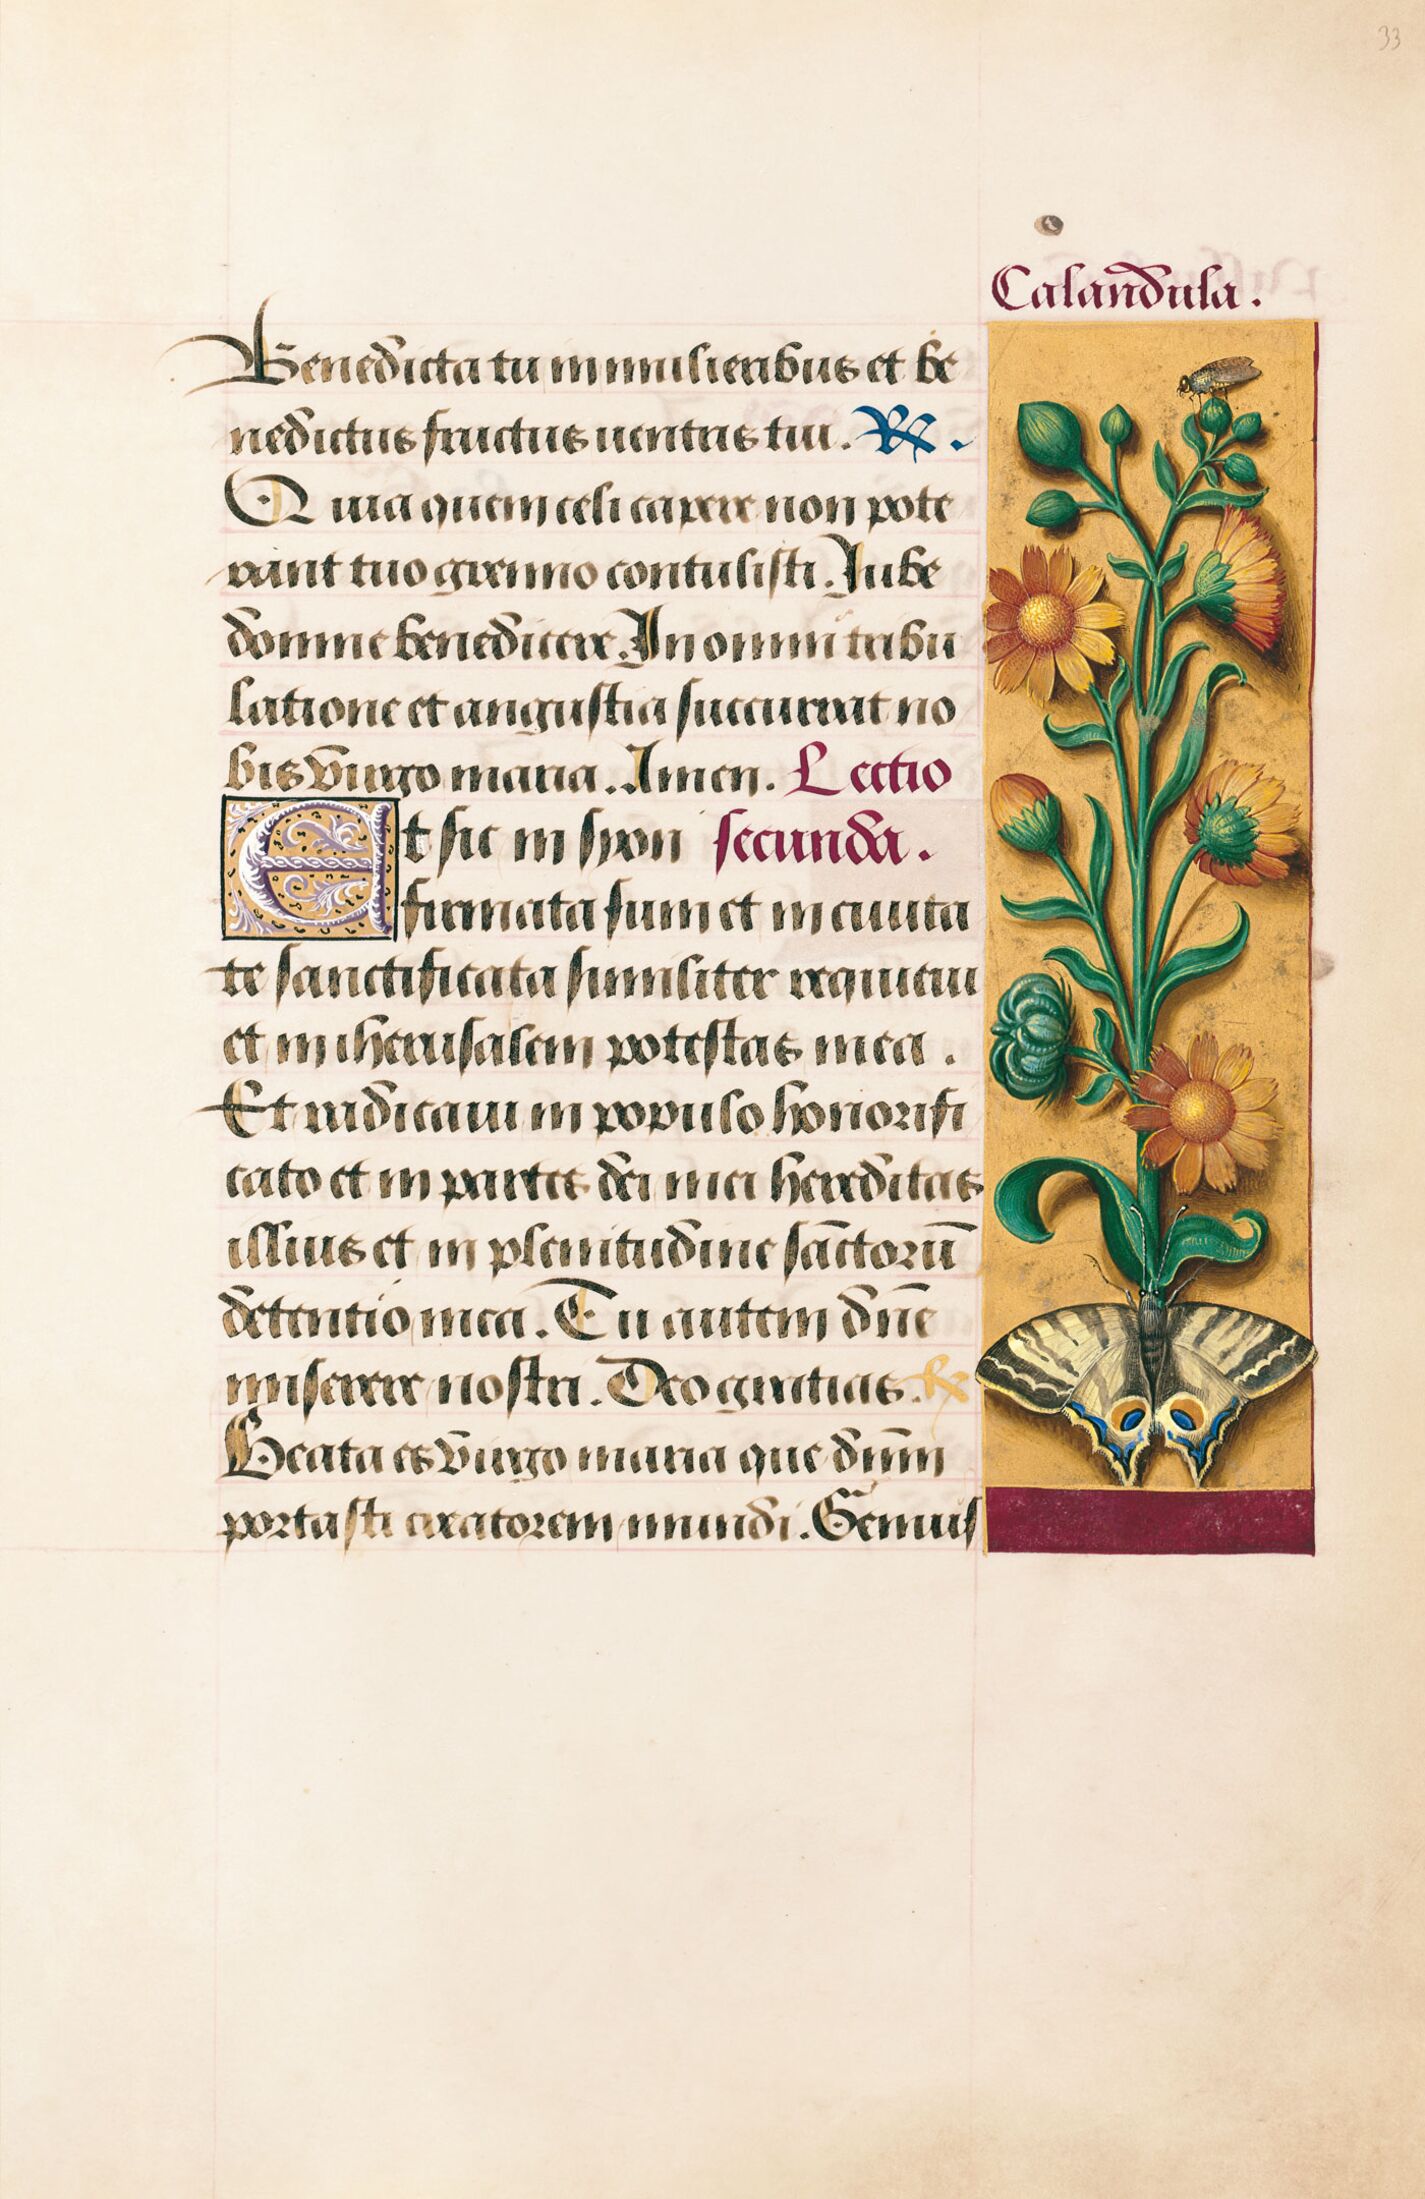 33
Calandula.
Benedicta tu in mulieribus et be
nedictus fructus uentris tui. ℟.
Quia quem celi capere non pote
rant tuo gremio contulisti. Iube
domne benedicere. In omni tribu
latione et angustia succurrat no
bis virgo maria. Amen. Lectio
Et sic in syon secunda.
firmata sum et in ciuita
te sanctificata similiter requieui
et in iherusalem potestas mea.
Et radicaui in populo honorifi
cato et in partes dei mei hereditas
illius et in plenitudine sāctorū
detentio mea. Tu autem dn̄e
miserere nostri. Deo gratias. ℟
Beata es virgo maria que dn̄m
portasti creatorem mundi. Genuis